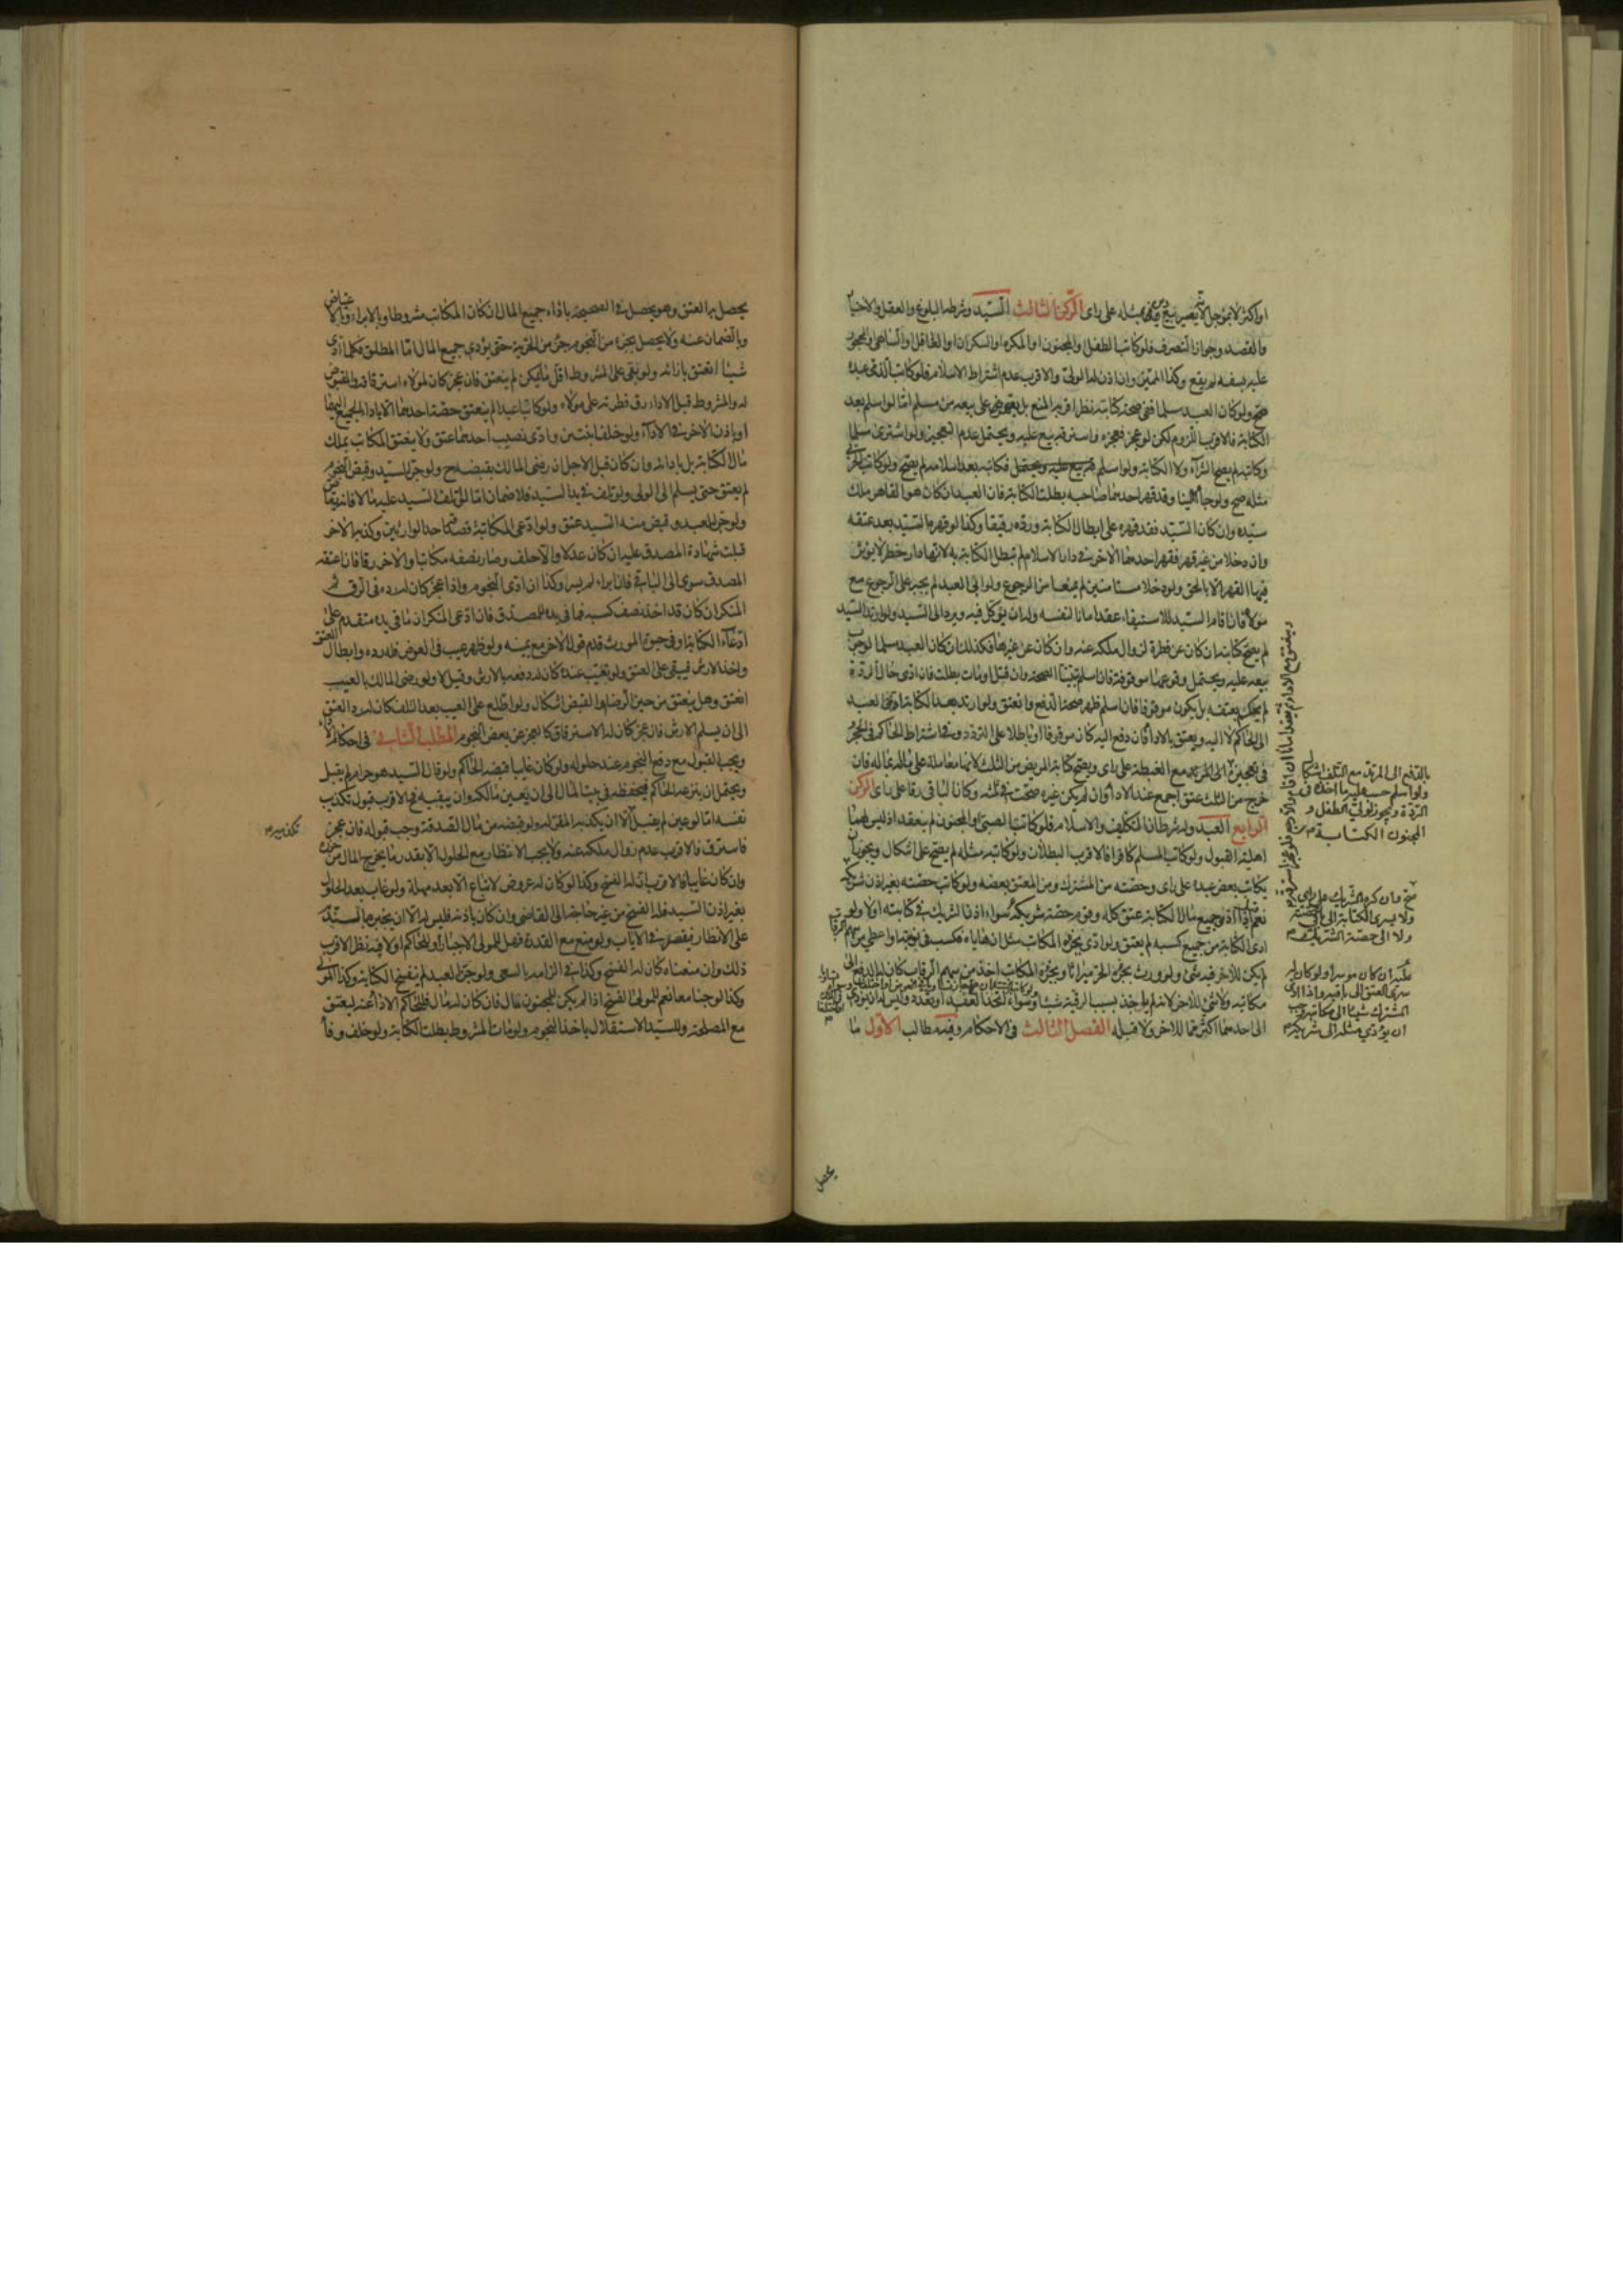 او اكثر لا بموجل لانه يصير بيع دين بمثله على راى الركن الثالث السيد وشرطه البلوغ والعقل والاختيار
والقصد وجواز التصرف فلو كاتب الطفل والمجنون او المكره او السكران او الغافل والساهى والمحجور
عليه بسفه لم يقع وكذا المميز وان اذن له الولى والاقرب عدم اشتراط الاسلام فلو كاتب الذمى عبده
صح ولو كان العبد مسلما ففى صحة كتابته نظر اقربه المنع بل يقهر على بيعه من مسلم اما لو اسلم بعد
الكتابة فالاقرب اللزوم لكن لو عجز فعجزه واسترقه بيع عليه ويحتمل عدم التعجيز ولو اشترى مسلما
وكاتبه لم يصح الشراء ولا الكتابة ولو اسلم فكاتبه بعد اسلامه لم يصح ولو كاتب الحربى
مثله صح ولو جاءا الينا وقد قهر احدهما صاحبه بطلت الكتابة فان العبد ان كان هو القاهر ملك
سيده وان كان السيد فقد قهره على ابطال الكتابة ورده رقيقا وكذا لو قهره السيد بعد عتقه
وان دخلا من غير قهر فقهر احدهما الاخر فى دار الاسلام لم تبطل الكتابة لانها دار حظر لا يؤثر
فيها القهر الا بالحق ولو دخلا مستامنين لم يمنعا من الرجوع ولو ابى العبد لم يجبر على الرجوع مع
مولاه فان اقام السيد للاستيفاء عقد امانا لنفسه وله ان يوكل فيه ويرد الى السيد ولو ارتد السيد
لم يصح كتابته ان كان عن فطرة لزوال ملكه عنه وان كان عن غيرها فكذلك ان كان العبد مسلما لوجوب
بيعه عليه ويحتمل وقوعها موقوفة فان اسلم تبينا الصحة وان قتل او مات بطلت فان ادى حال الردة
لم يحكم بعتقه بل يكون موقوفا فان اسلم ظهر صحة الدفع وانعتق ولو ارتد بعد الكتابة ادى العبد
الى الحاكم لا اليه ويعتق بالاداء فان دفع اليه كان موقوفا او باطلا على التردد وفى اشتراط الحاكم فى الحجر
خرج من الثلث عتق اجمع عند الاداء وان لم يكن غيره صحت فى ثلثه وكان الباقى رقا على راى الركن
الرابع العبد وله شرطان التكليف والاسلام فلو كاتب الصبى او المجنون لم ينعقد اذ ليس لهما
اهلية القبول ولو كاتب المسلم كافرا فالاقرب البطلان ولو كاتبه مثله لم يصح على اشكال ويجوز ان
يكاتب بعض عبده على راى وحصته من المشترك ومن المعتق بعضه ولو كاتب حصته بغير اذن شريكه
ادى الكتابة من جميع كسبه لم يعتق ولو ادى بجزئه المكاتب مثل ان هاياه فكسب فى نوبته او اعطى من سهم الرقاب
لم يكن للاخر فيه شئ ولو ورث بجزئه الحر ميراثا وبجزئه المكاتب اخذ من سهم الرقاب كان له الدفع الى
الى احدهما اكثر مما للاخر ولا قبله الفصل الثالث فى الاحكام وفيه مطالب الاول ما
بالدفع الى المرتد مع التلف
ولو اسلم حسب عليه ما اخذه فى
الردة ويجوز لولى الطفل و
المجنون الكتابة
صح وان كره الشريك على راى
ولا يسرى الكتابة الى باقى حصته
ولا الى حصة الشريك
عليه ان كان موسرا ولو كان له
سرى العتق الى باقيه واذا ادى
المشترك شيئا الى مكاتبه وجب
ان يؤدى مثله الى شريكه
يحصل
يحصل به العتق وهو يحصل فى الصحيحة باداء جميع المال ان كان المكاتب مشروطا وبالابراء والاعتياض
وبالضمان عنه ولا يحصل بجزء من النجوم جزء من الحرية حتى يؤدى جميع المال اما المطلق فكلما ادى
شيئا انعتق بازائه ولو بقى على المشروط اقل ما يمكن لم ينعتق فان عجز كان لمولاه استرقاقه والمقبوض
له والمشروط قبل الاداء رق فطرته على مولاه ولو كاتبا عبدا لم ينعتق حصة احدهما الا باداء الجميع اليهما
او باذن الاخر فى الاداء ولو خلف ابنين وادى نصيب احدهما عتق ولا ينعتق المكاتب بملك
مال الكتابة بل بادائه وان كان قبل الاجل ان رضى المالك بقبضه ولو جن السيد وقبض النجوم
لم يعتق حتى يسلم الى الولى ولو تلف فى يد السيد فلا ضمان اما لو اتلف السيد عليه مالا فانه يقاص
ولو جن العبد وقبض منه السيد عتق ولو ادعى المكاتبة فصدقه احد الوارثين وكذبه الاخر
قبلت شهادة المصدق عليه ان كان عدلا والا حلف وصار نصفه مكاتبا والاخر رقا فان اعتقه
المصدق سرى الى الباقى فان ابراه لم يسر وكذا ان ادى النجوم واذا عجز كان له رده فى الرق ثم
المنكر ان كان قد اخذ نصف كسبه فما فى يده للمصدق فان ادعى المنكر ان ما فى يده متقدم على
ادعاء الكتابة او فى حيوة المورث قدم قول الاخر مع يمينه ولو ظهر عيب فى العوض فله رده وابطال العتق
واخذ الارش فيبقى على العتق ولو تعيب عنده كان له دفعه بالارش وقيل لا ولو رضى المالك بالعيب
انعتق وهل ينعتق من حين الرضا او القبض اشكال ولو اطلع على العيب بعد التلف كان له رد العتق
الى ان يسلم الارش فان عجز كان له الاسترقاق كالعجز عن بعض النجوم المطلب الثانى فى احكام الاداء
ويجب القبول مع دفع النجوم عند حلوله ولو كان غايبا قبضه الحاكم ولو قال السيد هو حرام لم يقبل
ويحتمل ان ينزعه الحاكم فيحفظه فى بيت المال الى ان يعين مالكه وان يبقيه معه والاقرب قبول تكذيب
نفسه اما لو عين لم يقبل الا ان يكذبه المقر له ولو قبضه من مال الصدقة وجب قبوله فان عجز
فاسترق فالاقرب عدم زوال ملكه عنه ولا يجب الانتظار مع الحلول الا بقدر ما يخرج المال من حرزه
وان كان غايبا فالاقرب ان له الفسخ وكذا لو كان له عروض لا تباع الا بعد مهلة ولو غاب بعد الحلول
بغير اذن السيد فله الفسخ من غير حاجة الى القاضى وان كان باذنه فليس له الا ان يخبره بالندم
على الانظار فيقصر فى الاياب ولو منع مع القدرة فهل للمولى الاجبار او للحاكم او لا فيه نظر الاقرب
ذلك وان منعناه كان له الفسخ وكذا فى الزامه بالسعى ولو جن العبد لم تنفسخ الكتابة وكذا المولى
وكذا لو جنا معا نعم للمولى الفسخ اذا لم يكن للمجنون مال فان كان له مال فللحاكم الاداء عنه ليعتق
مع المصلحة وللسيد الاستقلال باخذ النجوم ولو مات المشروط بطلت الكتابة ولو خلف وفاء
تكذيبه